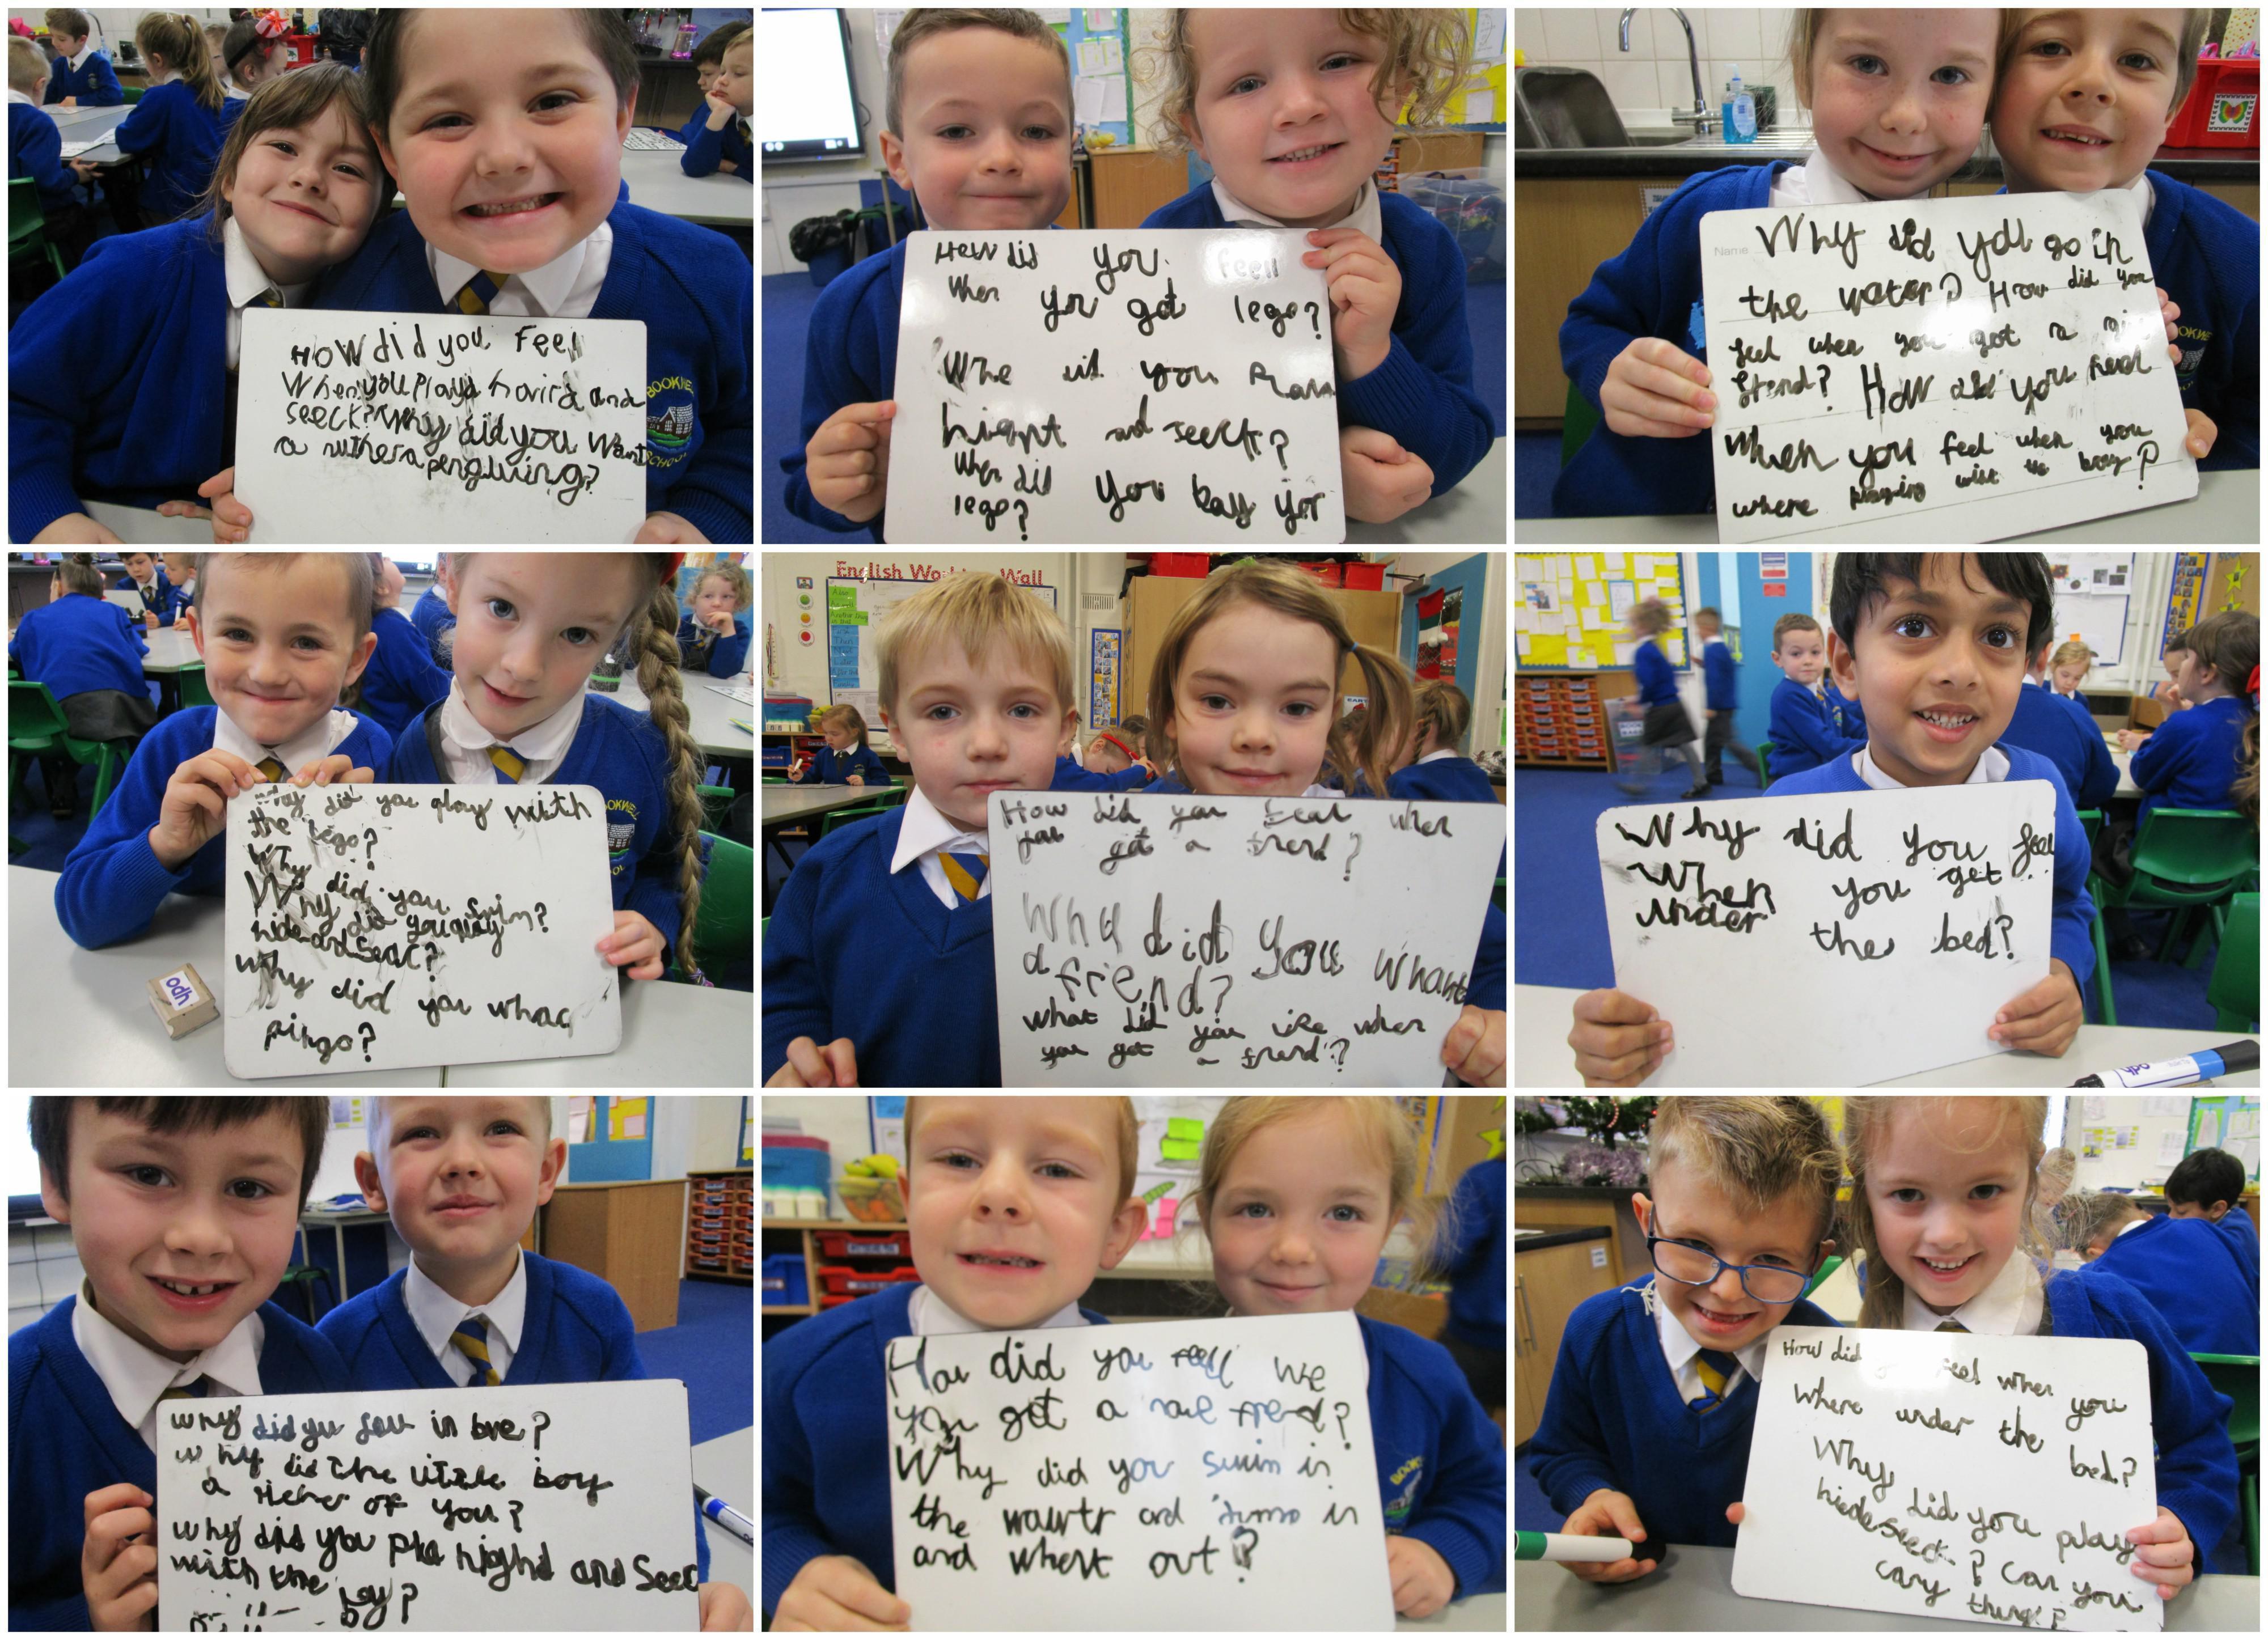 HOW did you Feel
When you Playd
and
seeck? Why did you Want
a nuther a penguwing?
BOOKWE
SCHOOL
How did you feell
When you got lego?
you
and seeck?
When did you bay yor
lego?
Name
Why did you go in
the water? How did you
feel when you got a
frend? How did you
When you feel when you
where playing wiht the boy?
OKWE
did you play with
the lego?
Why did you swim?
Why did you play
hide and Seac?
Why did you
pingo?
odh
OKWE
OOL
English Wo Wall
How did you when
you got a frend?
Why did you whant
a friend?
what did you like when
you got a frend?
Why did you feel
When you get
under the bed?
ypo
why did yu in
why did the little boy
a of you?
why did you pla highd and Seec
with the boy?
How did you feell we
you got a frend?
Why did you swim in
the wawtr and jump in
and whent out?
BOOK
How did feel when you
where under the bed?
Why did you play
hide seeck? Can you
cary things?